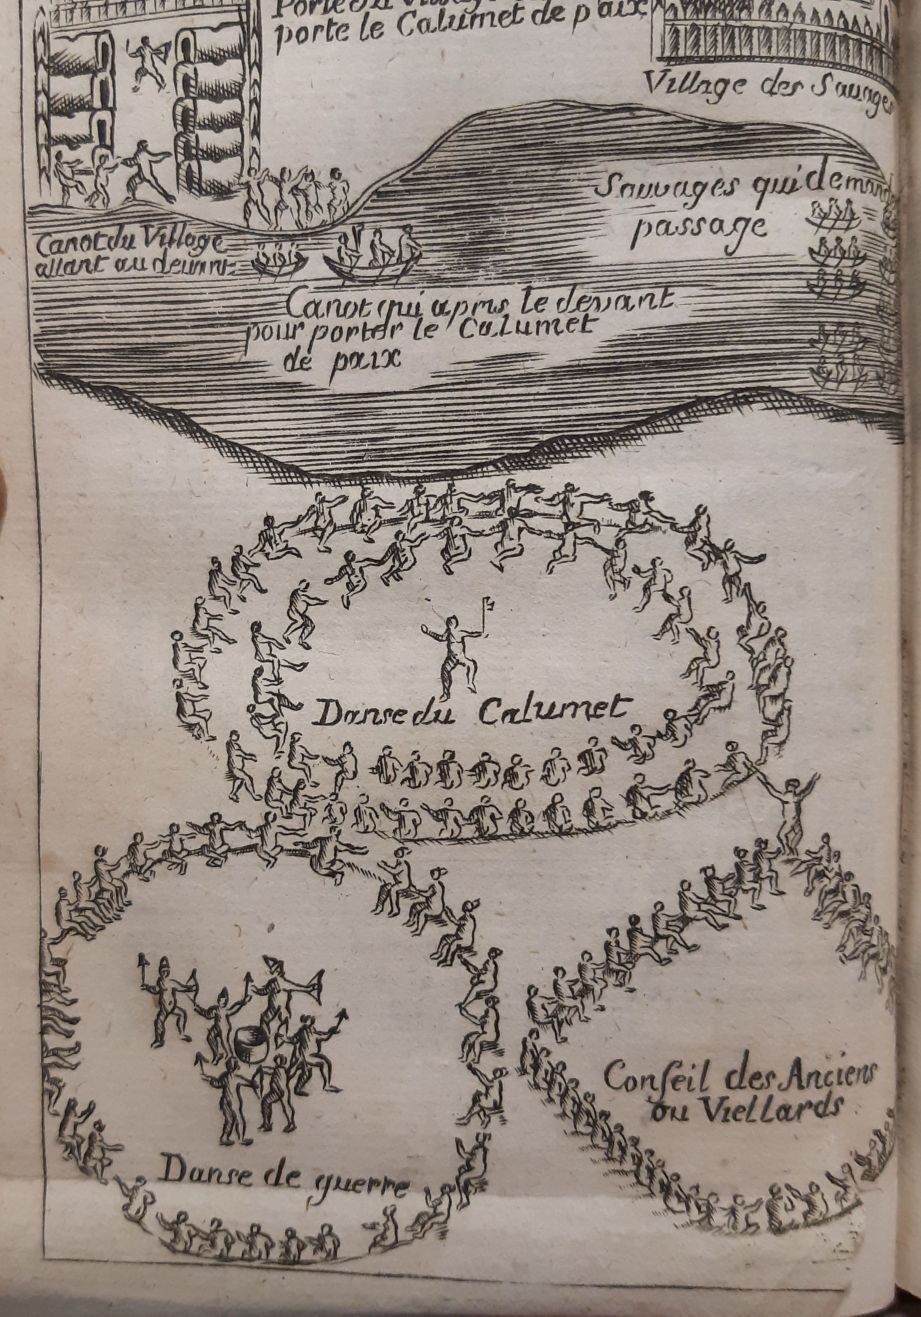 Porte du Village
porte le Calumet de paix
Village des Sauvages
Sauvages qui demand
passage
Canot du Village
allant au devant
Canot qui a pris le devant
pour porter le Calumet
de paix
Danse du Calumet
Conseil des Anciens
ou Viellards
Danse de guerre